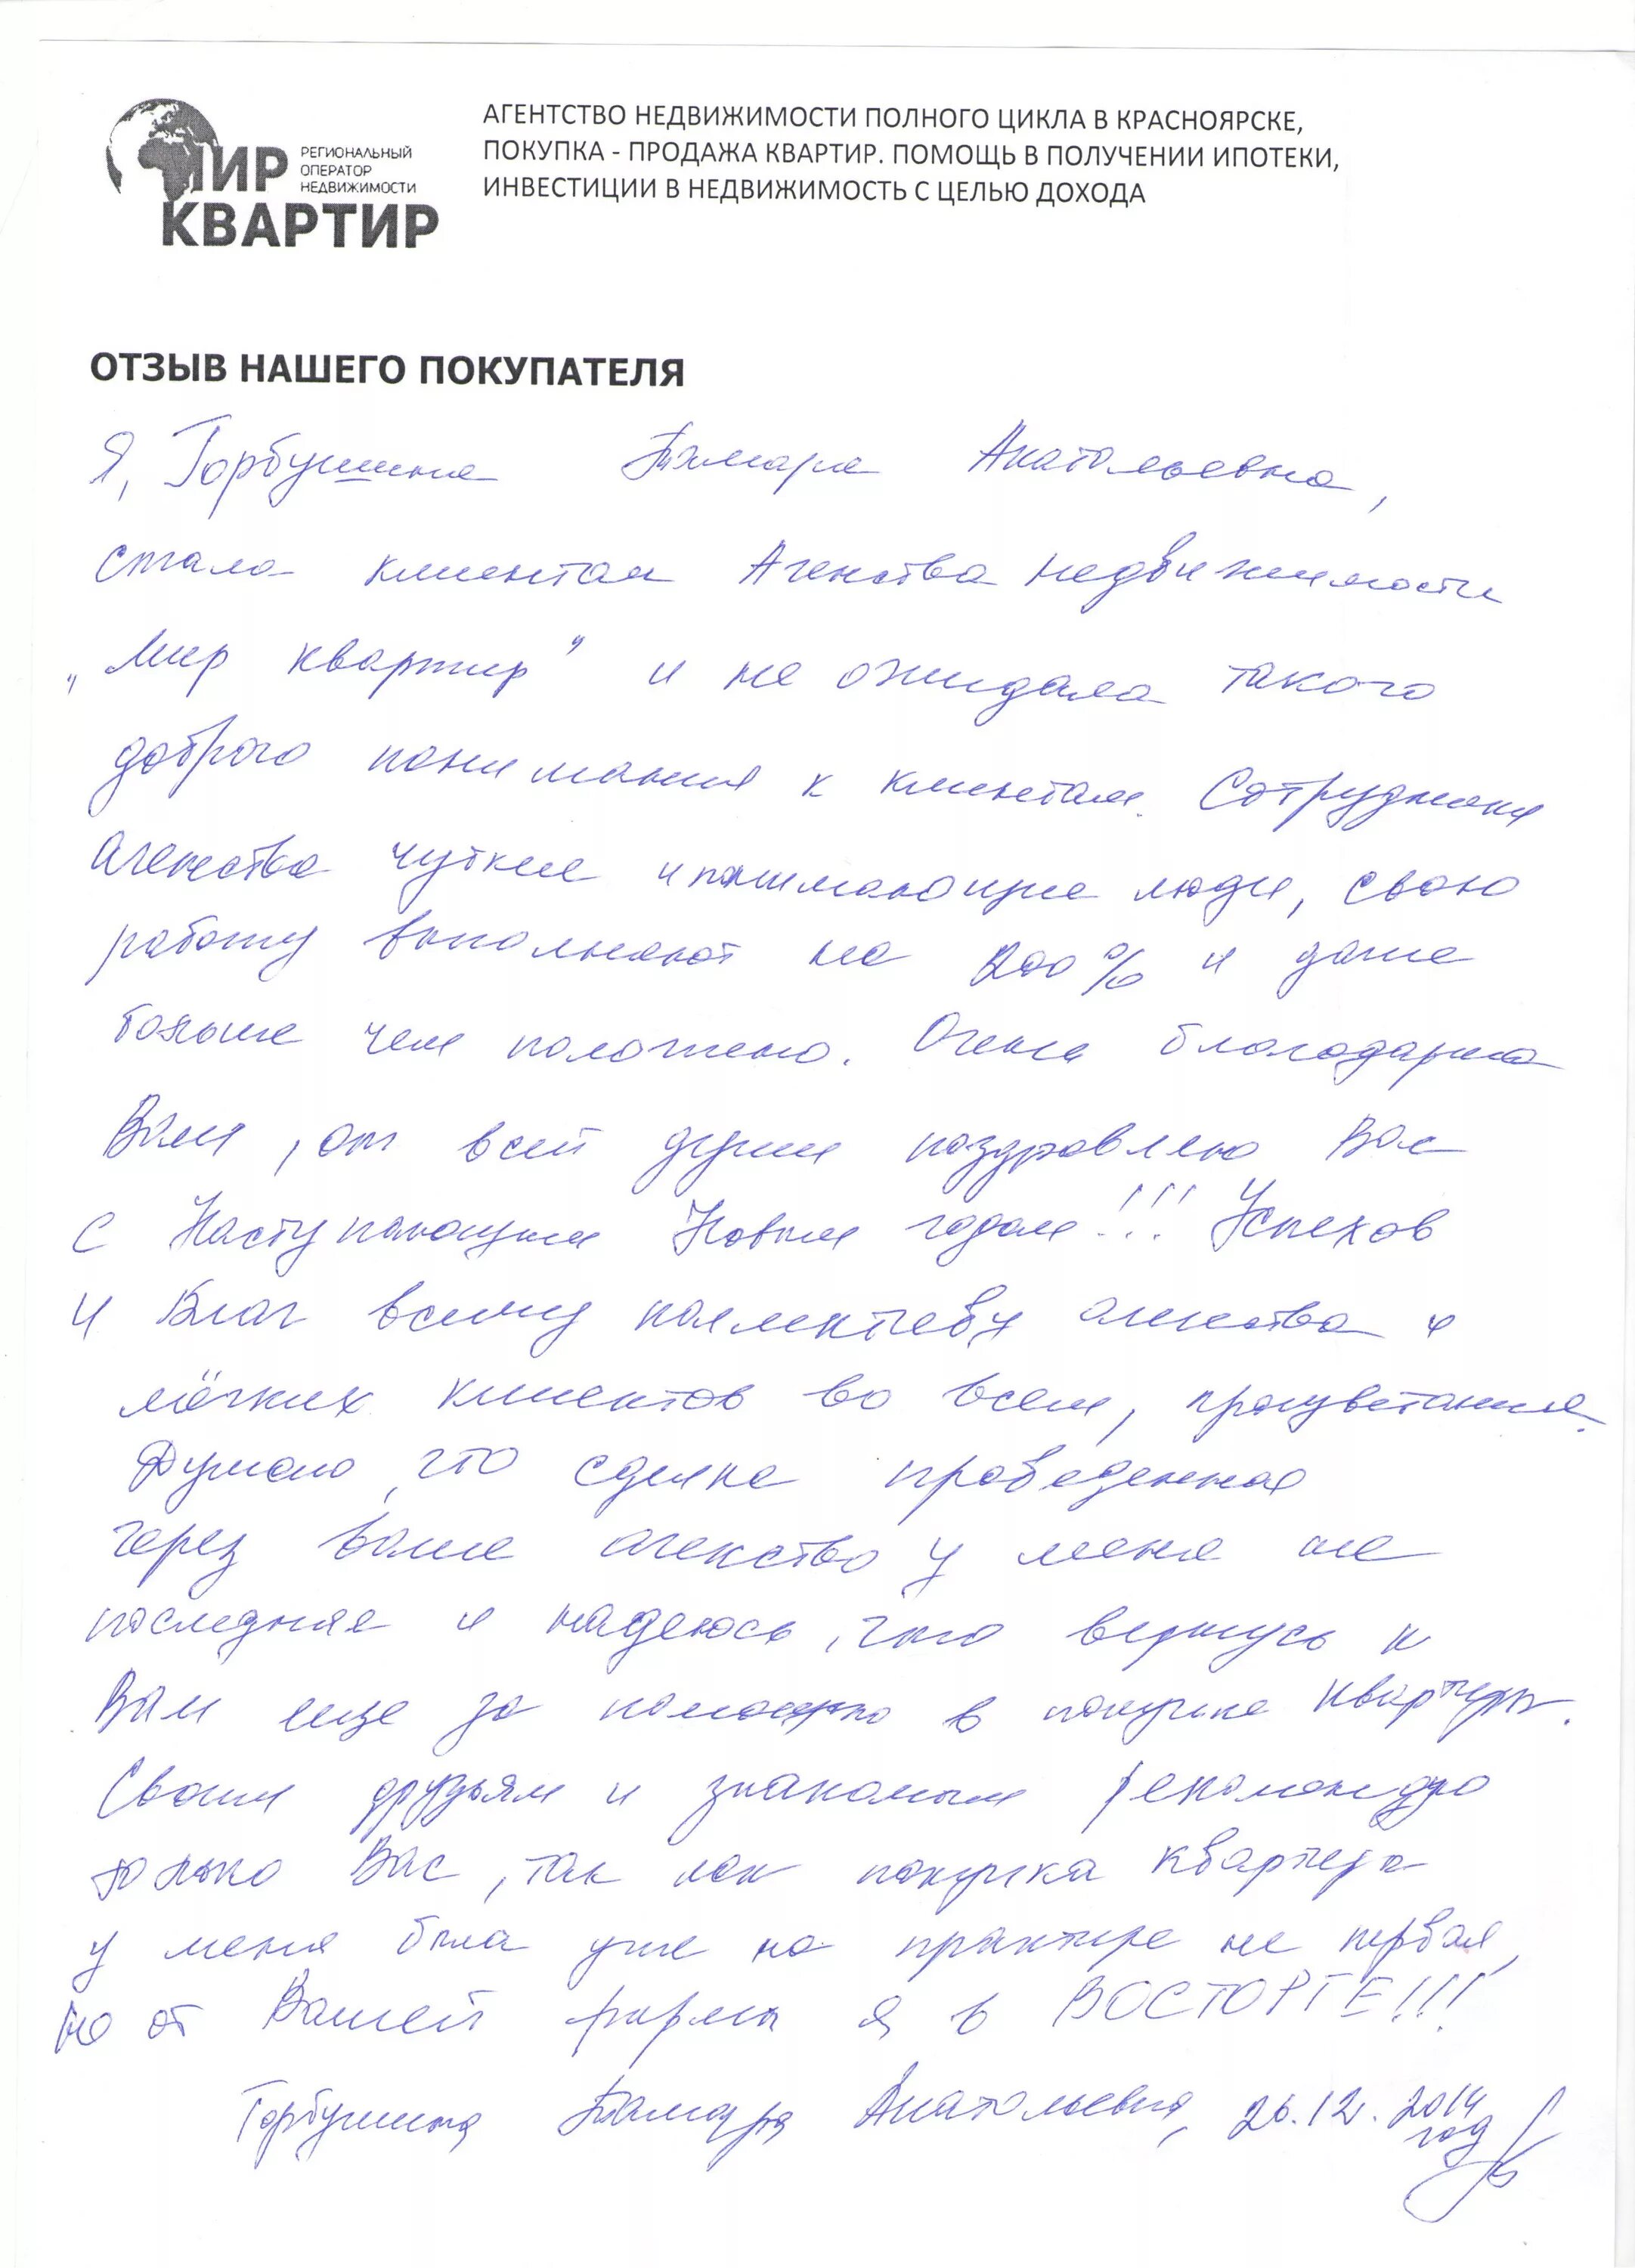 МИР КВАРТИР
РЕГИОНАЛЬНЫЙ
ОПЕРАТОР
НЕДВИЖИМОСТИ
АГЕНТСТВО НЕДВИЖИМОСТИ ПОЛНОГО ЦИКЛА В КРАСНОЯРСКЕ,
ПОКУПКА - ПРОДАЖА КВАРТИР. ПОМОЩЬ В ПОЛУЧЕНИИ ИПОТЕКИ,
ИНВЕСТИЦИИ В НЕДВИЖИМОСТЬ С ЦЕЛЬЮ ДОХОДА
ОТЗЫВ НАШЕГО ПОКУПАТЕЛЯ
Я, Горбушина Тамара Анатольевна,
стала клиентом Агенства недвижимости
„Мир квартир" и не ожидала такого
доброго понимания к клиентам. Сотрудники
агенства чуткие и понимающие люди, свою
работу выполняют на 200% и даже
больше чем положено. Очень благодарна
Вам, от всей души поздравляю Вас
с Наступающим Новым годом!!! Успехов
и Благ всему коллективу агенства и
лёгких клиентов во всем, процветания.
Думаю, что сделка проведенная
через ваше агенство у меня не
последняя и надеюсь, что вернусь к
Вам еще за помощью в покупке квартиры.
Своим друзьям и знакомым рекомендую
только Вас, так как покупка квартиры
у меня была уже на практике не первая,
но от Вашей фирмы я в ВОСТОРГЕ!!!
Горбушина Тамара Анатольевна, 26.12.2014
год